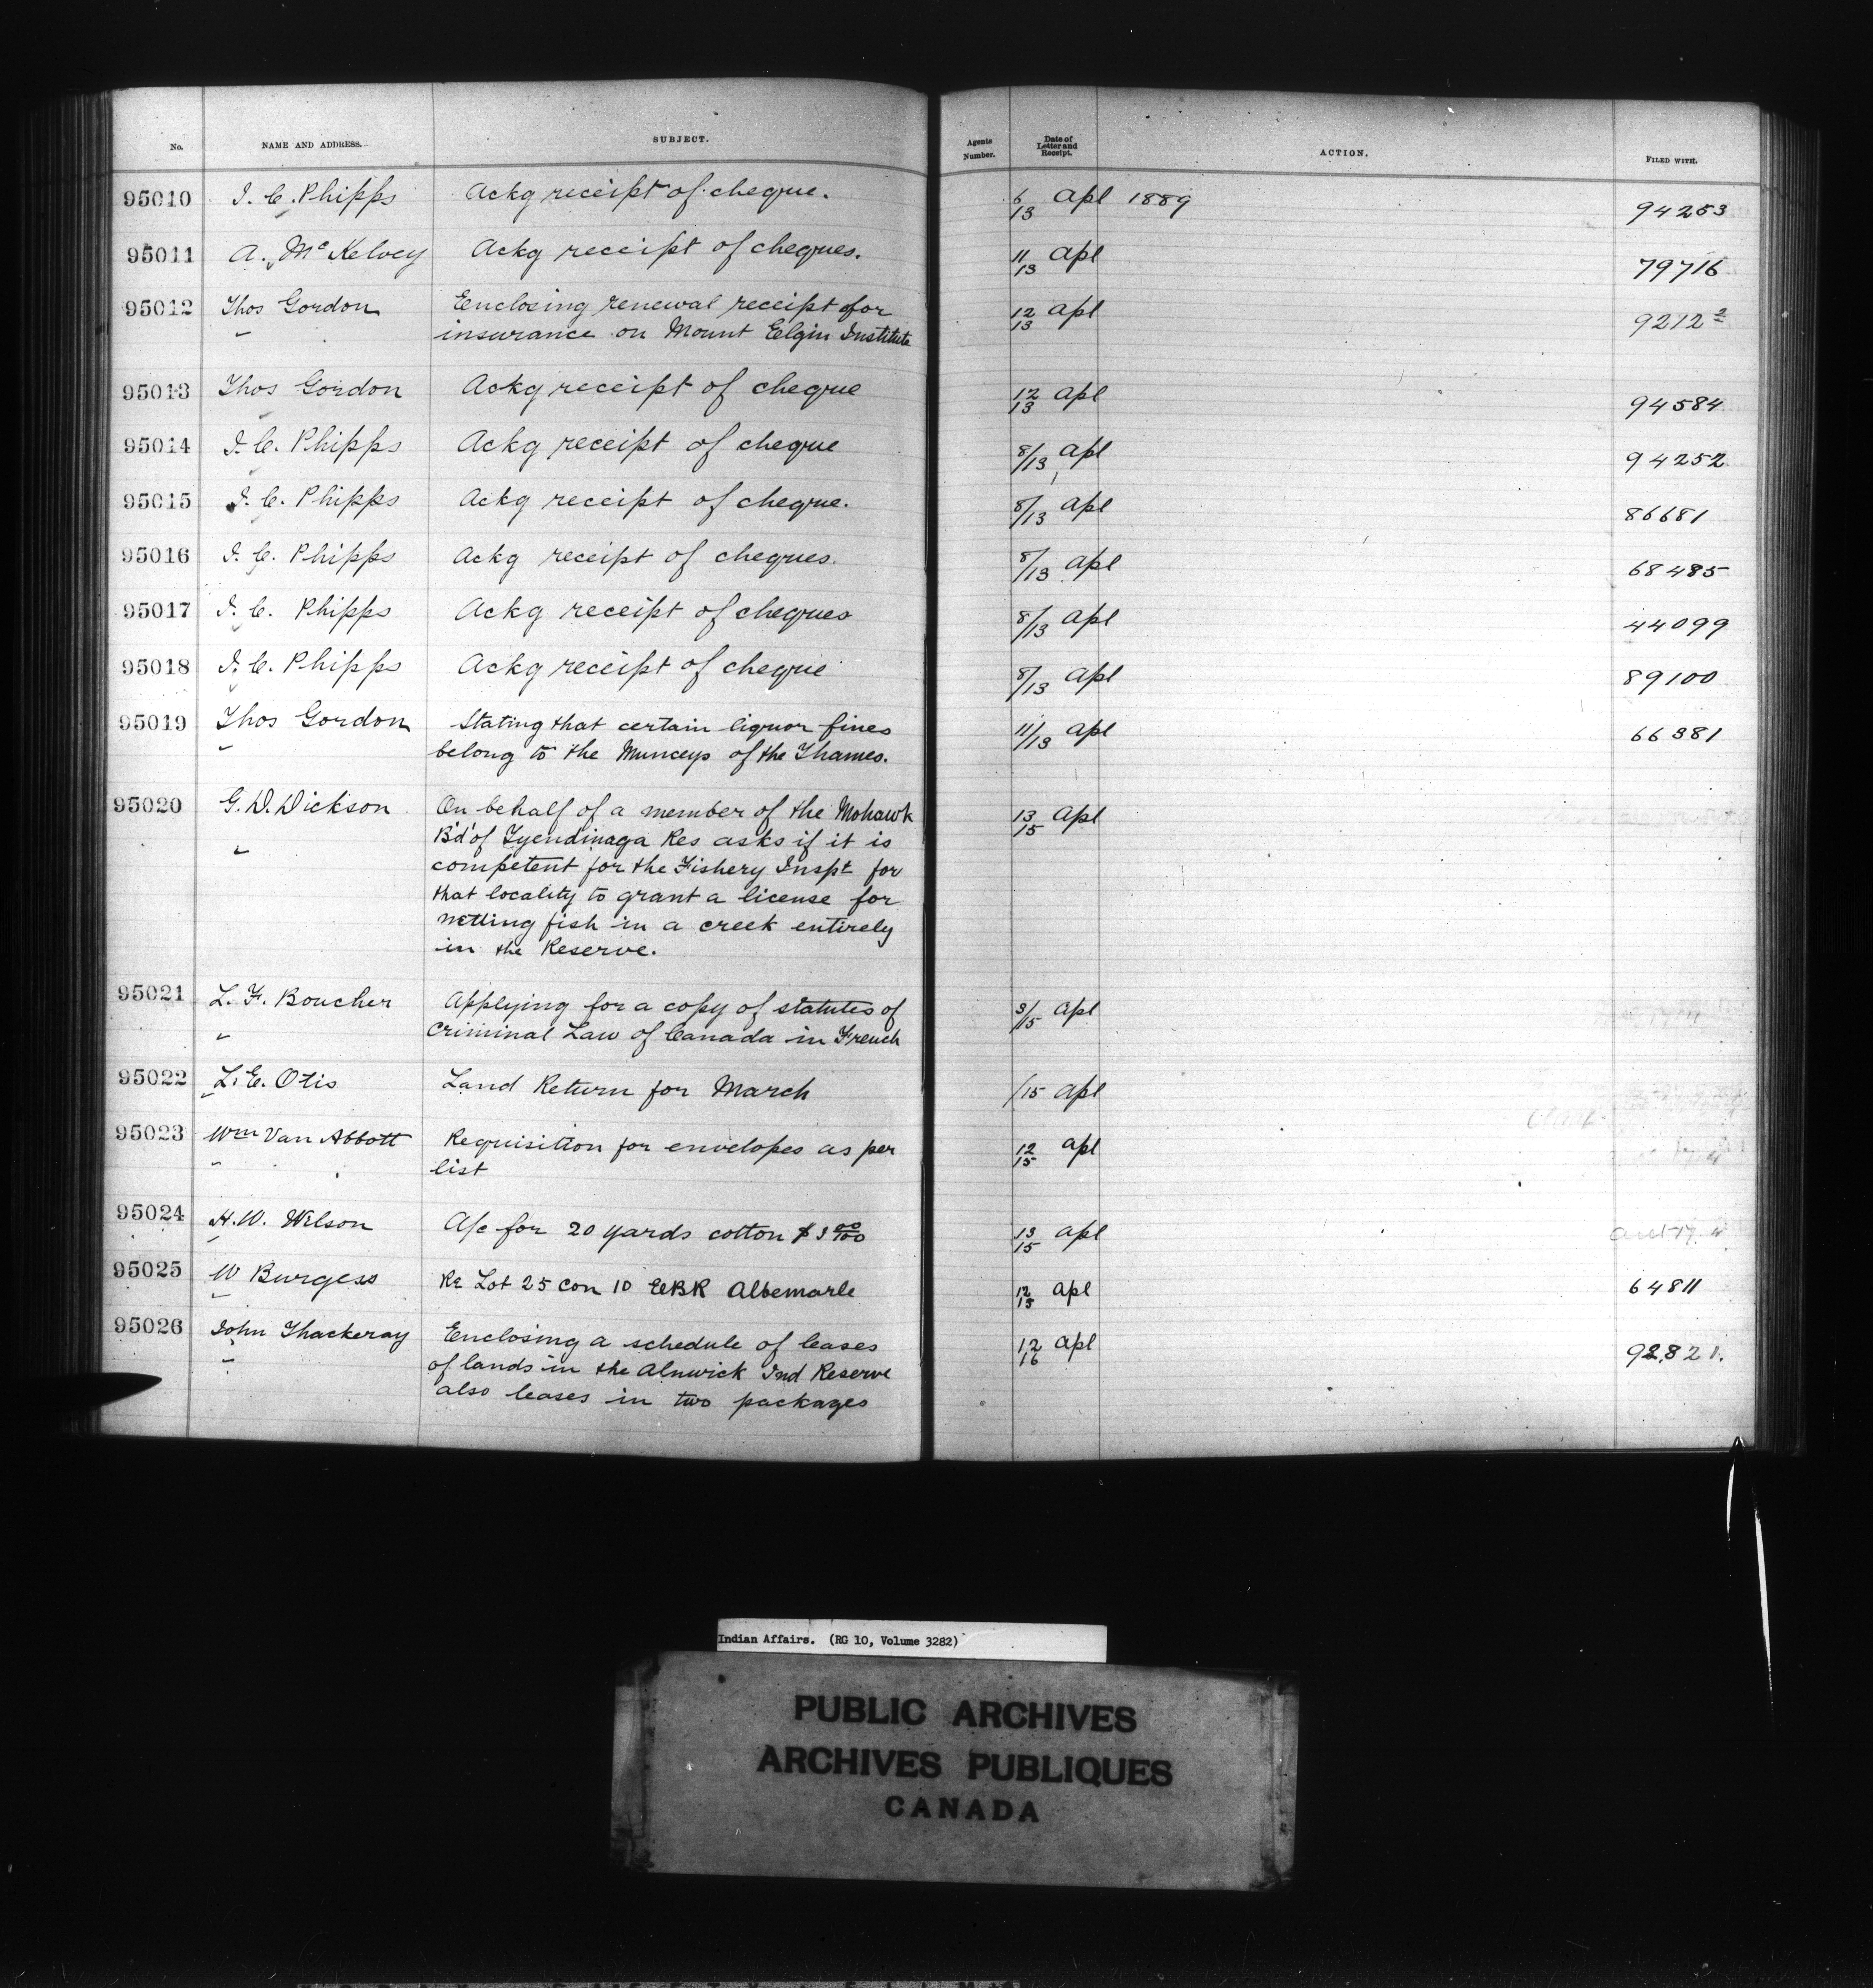 No. NAME AND ADDRESS. SUBJECT. Agents Number. Date of Letter and Receipt. ACTION. FILED WITH.
95010 J. C. Phipps Ackg receipt of cheque. 6/13 Apl 1889 94253
95011 A. McKelvey Ackg receipt of cheques. 11/13 Apl 79716
95012 Thos Gordon Enclosing renewal receipt for 12/13 Apl 9212²
" insurance on Mount Elgin Institute
95013 Thos Gordon Ackg receipt of cheque 12/13 Apl 94584
95014 J. C. Phipps Ackg receipt of cheque 8/13 Apl 94252
95015 J. C. Phipps Ackg receipt of cheque. 8/13 Apl 86681
95016 J. C. Phipps Ackg receipt of cheques. 8/13 Apl 68485
95017 J. C. Phipps Ackg receipt of cheques 8/13 Apl 44099
95018 J. C. Phipps Ackg receipt of cheque 8/13 Apl 89100
95019 Thos Gordon Stating that certain liquor fines 11/13 Apl 66381
" belong to the Munceys of the Thames.
95020 G. D. Dickson On behalf of a member of the Mohawk 13/15 Apl
B'd' of Tyendinaga Res asks if it is
" competent for the Fishery Inspt for
that locality to grant a license for
netting fish in a creek entirely
in the Reserve.
95021 L. F. Boucher Applying for a copy of statutes of 3/15 Apl
" Criminal Law of Canada in French
95022 L. E. Otis Land Return for March /15 Apl
95023 Wm Van Abbott Requisition for envelopes as per 12/15 Apl
" list
95024 H. W. Wilson A/c for 20 yards cotton $3 00/100 13/15 Apl
95025 W Burgess Re Lot 25 Con 10 EBR Albemarle 12/15 Apl 64811
95026 John Thackeray Enclosing a schedule of leases 12/16 Apl 92,821.
" of lands in the Alnwick Ind Reserve
also leases in two packages
Indian Affairs. (RG 10, Volume 3282)
PUBLIC ARCHIVES
ARCHIVES PUBLIQUES
CANADA